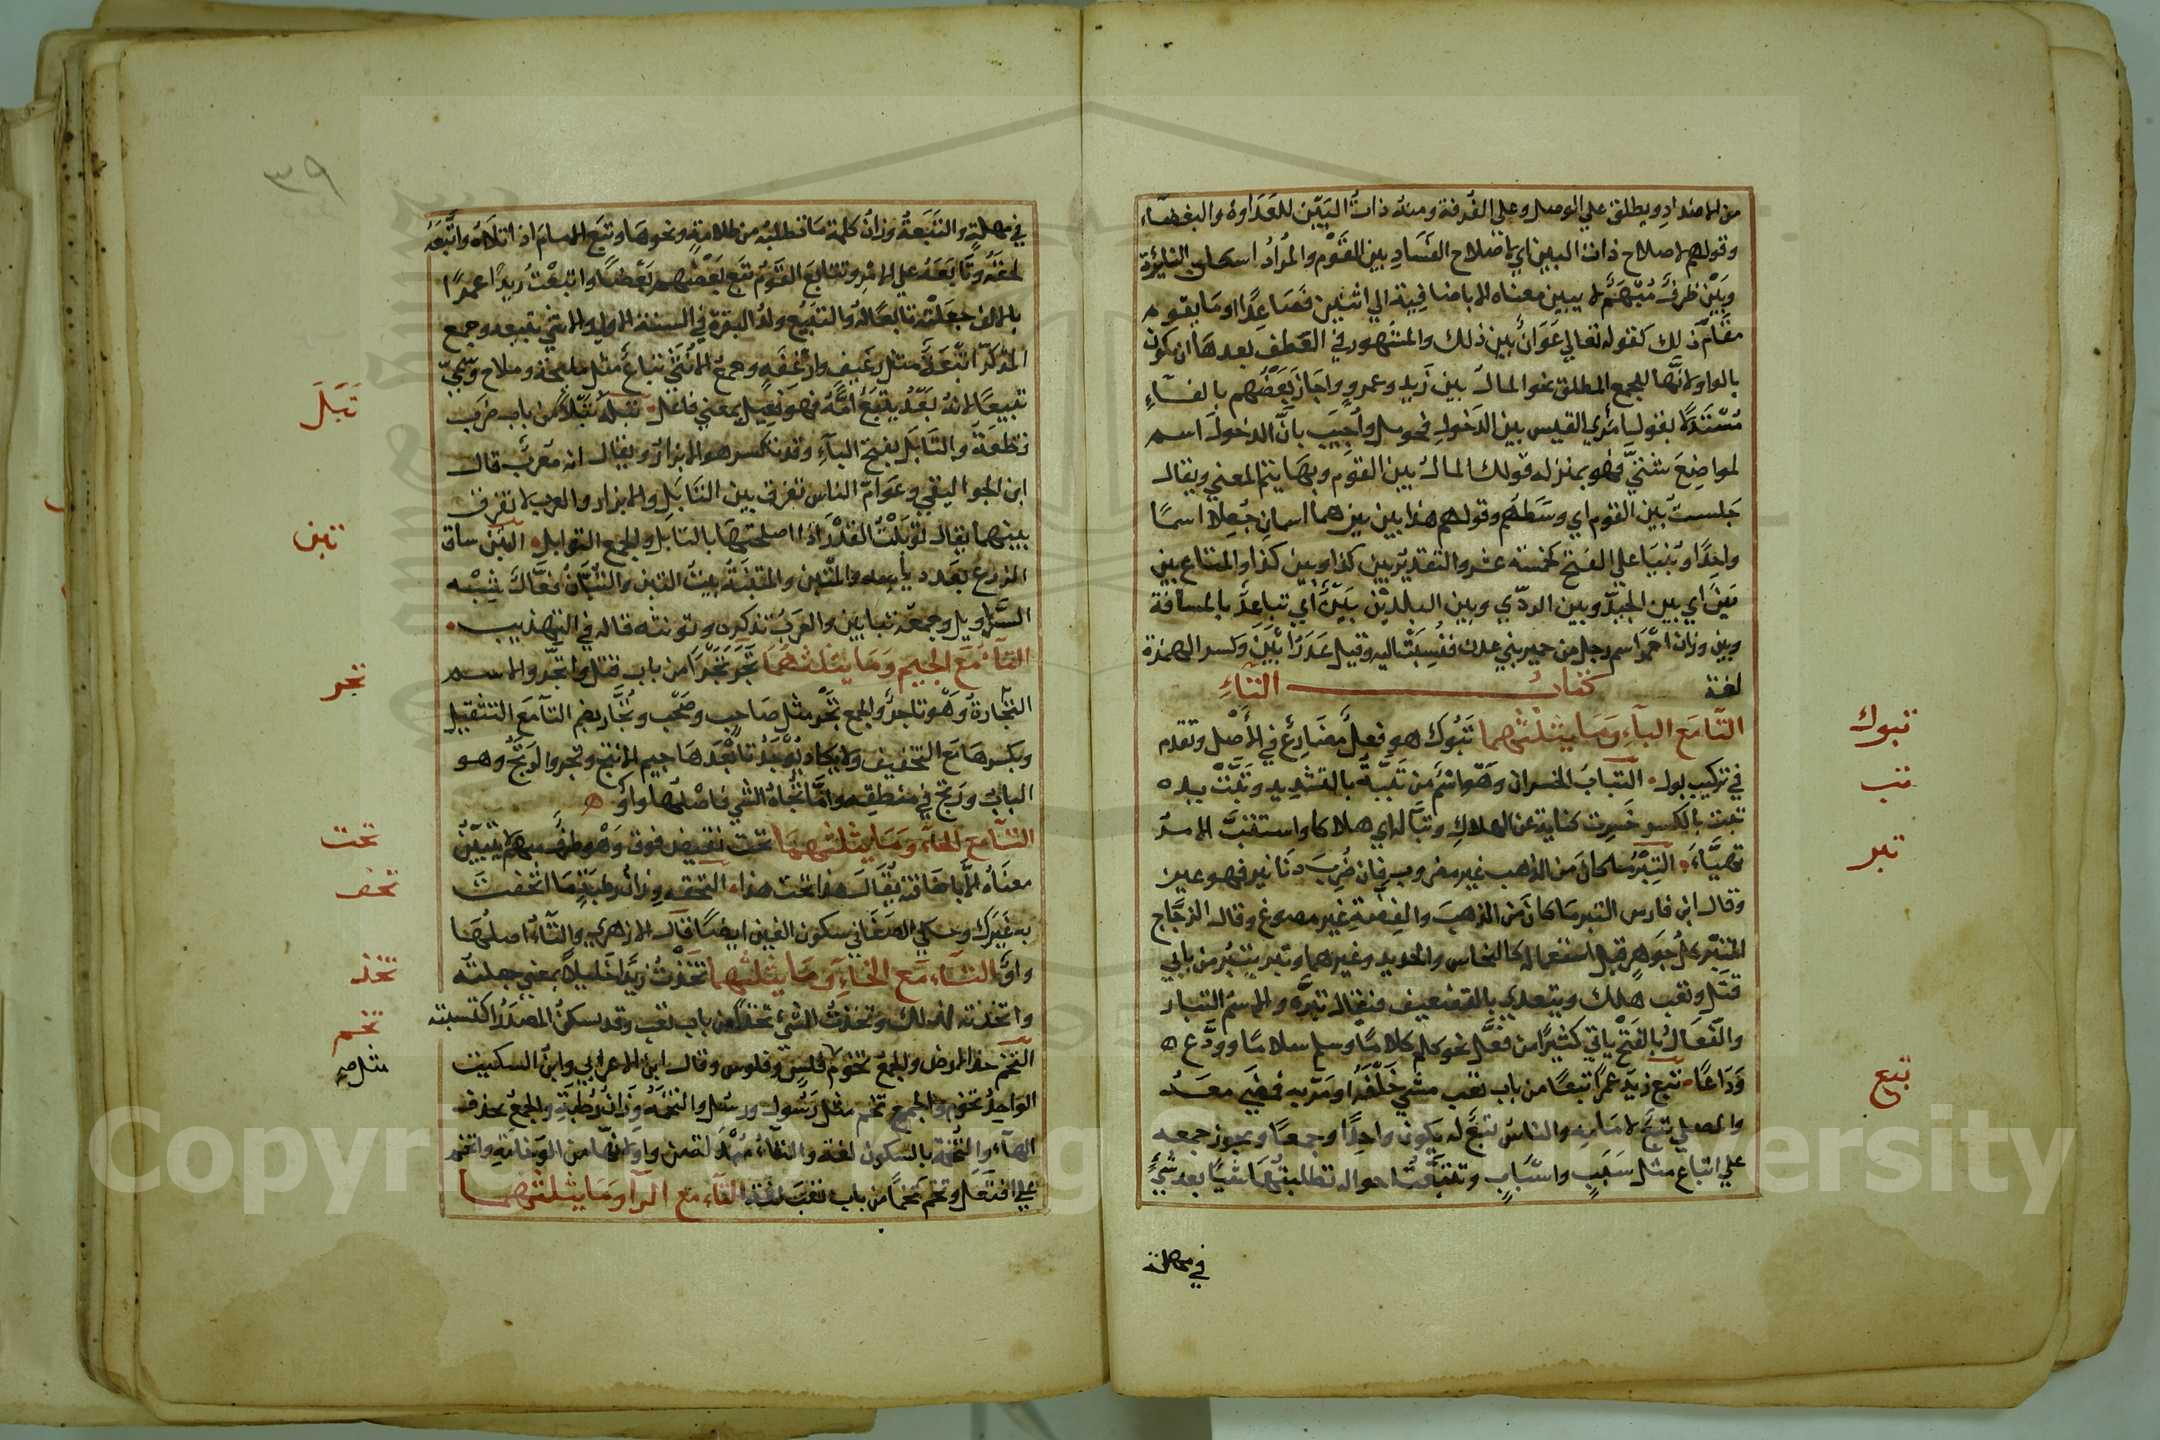 من الاضداد ويطلق علي الوصل وعلي الفرقة ومنه ذات البين للعداوة والبغضاء
وقولهم لاصلاح ذات البين اي لاصلاح الفساد بين القوم والمراد اسكان النائرة
وبين ظرف مبهم لا يبين معناه الا باضافته الي اثنين فصاعدا او ما يقوم
مقام ذلك كقوله تعالي عوان بين ذلك والمشهور في العطف بعدها ان يكون
بالواو لانها للجمع المطلق نحو المال بين زيد وعمرو واجاز بعضهم بالفاء
مستدلا بقول امرئ القيس بين الدخول فحومل واجيب بان الدخول اسم
لمواضع شتي فهو بمنزلة قولك المال بين القوم وبها يتم المعني ويقال
جلست بين القوم اي وسطهم وقولهم هذا بين بين هما اسمان جعلا اسما
واحدا وبنيا علي الفتح كخمسة عشر والتقدير بين كذا وبين كذا والمتاع بين
بين اي بين الجيد وبين الردي وبين البلدين بين اي تباعد بالمسافة
وبين وزان احمر اسم رجل من حمير بني عدن فنسبت اليه وقيل عدن ابين وكسر الهمزة
لغة كتاب التاء
التا مع الباء وما يثلثهما تبوك هو فعل مضارع في الاصل وتقدم
في تركيب بوك التباب الخسران وهو اسم من تببه بالتشديد وتبت يده
تبت بالكسر خسرت كناية عن الهلاك وتبا له اي هلاكا واستتب الامر
تهيأ التبر ما كان من الذهب غير مضروب فان ضرب دنانير فهو عين
وقال ابن فارس التبر ما كان من الذهب والفضة غير مصوغ وقال الزجاج
التبر كل جوهر قبل استعماله كالنحاس والحديد وغيرهما وتبر يتبر من بابي
قتل وتعب هلك ويتعدي بالتضعيف فيقال تبره والاسم التبار
والفعال بالفتح ياتي كثيرا من فعل نحو كلم كلاما وسلم سلاما وودع
وداعا تبع زيد عمرا تبعا من باب تعب مشي خلفه او مر به فمضي معه
والمصلي تبع لامامه والناس تبع له يكون واحدا وجمعا ويجوز جمعه
علي اتباع مثل سبب واسباب وتتبعت احواله تطلبتها شيا بعد شيء
في مهلة
تبوك
تب
تبر
تبع
٣٩
في مهلة والتبعة وزان كلمة ما تطلبه من ظلامة ونحوها وتبع الامام اذا تلاه واتبعه
لحقه وتابعه علي الامر وتتابع القوم تبع بعضهم بعضا واتبعت زيدا عمرا
بالالف جعلته تابعا له والتبيع ولد البقرة في السنة الاولي والانثي تبيعة وجمع
المذكر اتبعة مثل رغيف وارغفة وجمع الانثي تباع مثل مليحة وملاح وسمي
تبيعا لانه بعد يتبع امه فهو فعيل بمعني فاعل تبله تبلا من باب ضرب
قطعه والتابل بفتح الباء وقد تكسر هو الابزار ويقال انه معرب قال
ابن الجواليقي وعوام الناس تفرق بين التابل والابزار والعرب لا تفرق
بينهما يقال توبلت القدر اذا اصلحتها بالتابل والجمع التوابل التبن ساق
الزرع بعد دياسه والمتبن والمتبنة بيت التبن والتبان فعال شبه
السراويل وجمعه تبابين والعرب تذكره وتونثه قاله في التهذيب
التاء مع الجيم وما يثلثهما تجر تجرا من باب قتل واتجر والاسم
التجارة وهو تاجر والجمع تجر مثل صاحب وصحب وتجار بضم التا مع التثقيل
وبكسرها مع التخفيف ولا يكاد يوجد تا بعدها جيم الا نتج وتجر والرتج وهو
الباب ورتج في منطقه واما تجاه الشي فاصلها واو
التا مع الحاء وما يثلثهما تحت نقيض فوق وهو ظرف مبهم لا يتبين
معناه الا باضافته يقال هذا تحت هذا التحفة وزان رطبة ما اتحفت
به غيرك وحكي الصغاني سكون العين ايضا قال الازهري والتاء اصلها
واو التاء مع الخاء وما يثلثهما تخذت زيدا خليلا بمعني جعلته
واتخذته كذلك وتخذت الشيء تخذا من باب تعب وقد يسكن المصدر اكتسبته
التخم حد الارض والجمع تخوم مثل فلس وفلوس وقال ابن الاعرابي وابن السكيت
الواحد تخوم والجمع تخم مثل رسول ورسل والتخمة وزان رطبة والجمع بحذف
الهاء والتخمة بالسكون لغة والتاء مبدلة من واو لانها من الوخامة واتخم
علي افتعل وتخم تخما من باب تعب لغة التاء مع الرا وما يثلثهما
تبل
تبن
تجر
تحت
تحف
تخذ
تخم
مثل صح
Copyright © King Saud University